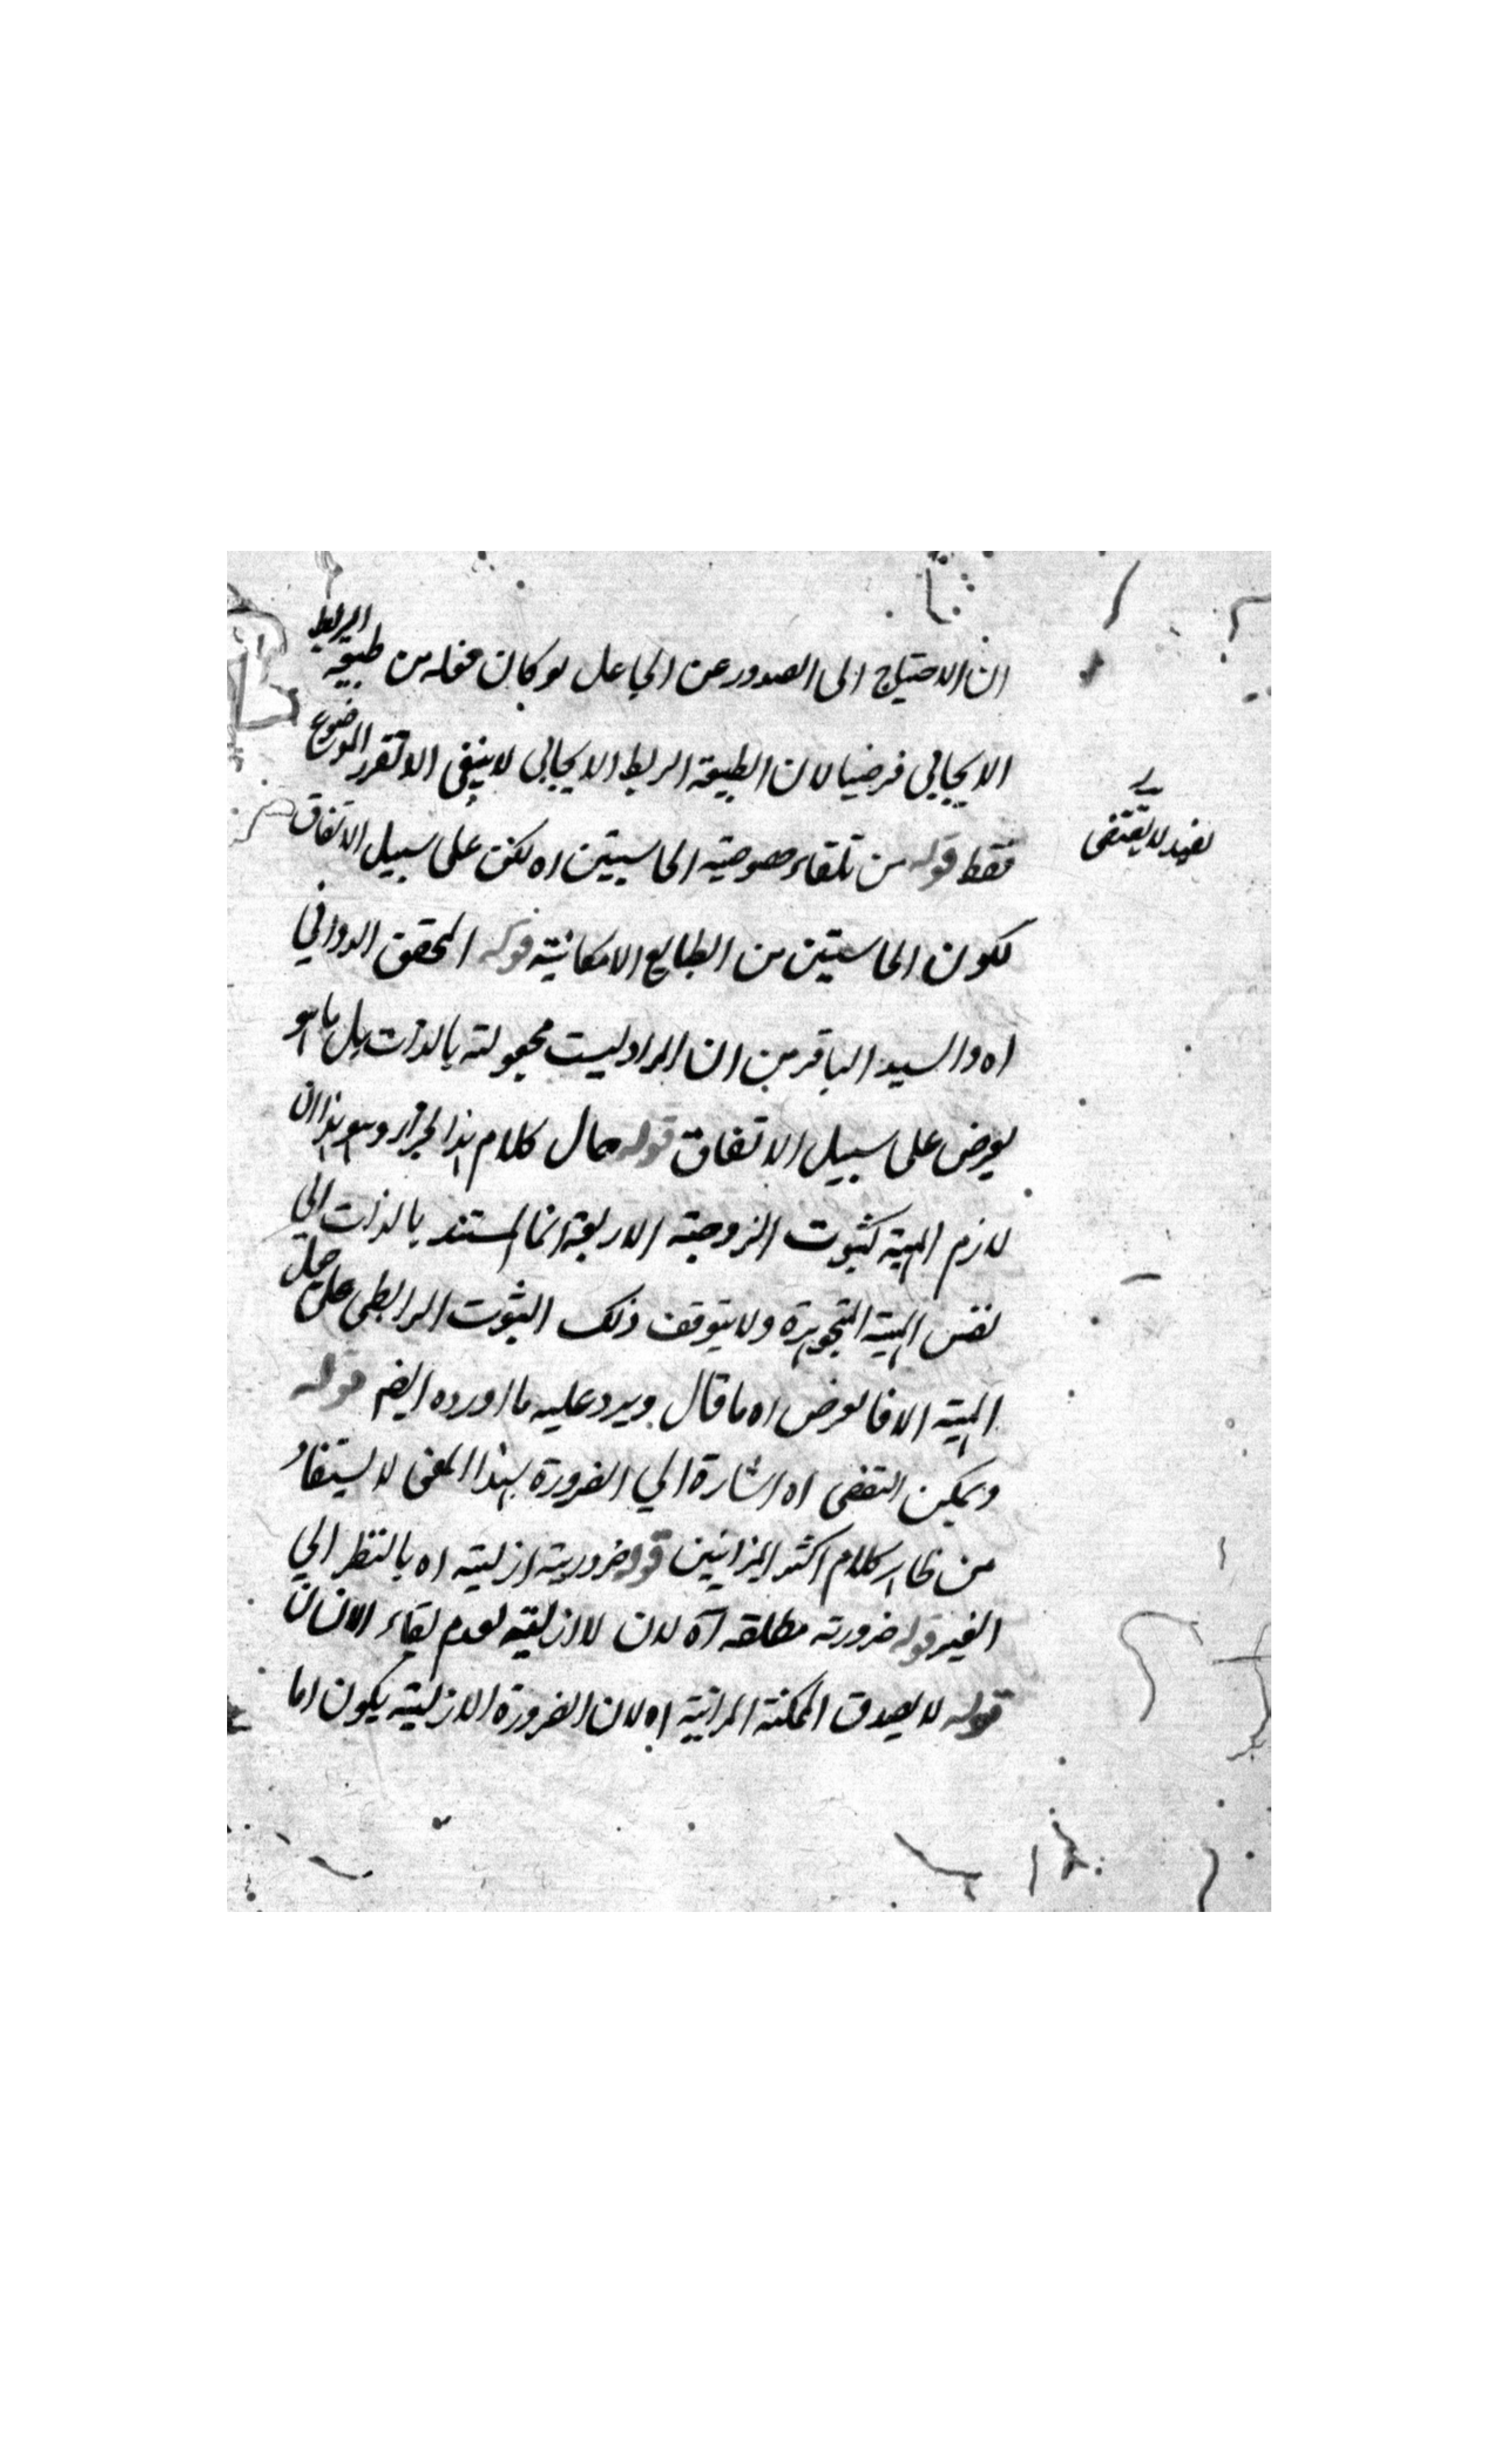 ان الاحتياج الى الصدور عن الجاعل لو كان فعله من طبيعه الربط
الايجابي فرضيا لان الطبيعة الربط الايجابي لا ينبغى الا تقرر الموضوع
فقط قوله من تلقاء خصوصية الحاشيتين اه لكن على سبيل الاتفاق
لكون الحاشيتين من الطبايع الامكانية قوله المحقق الدوانى
اه والسيد الباقر من ان المراد ليست مجعولته بالذات بل ما هو
بعرض على سبيل الاتفاق قوله مآل كلام هذا الجزار وهو هذا ان
لازم المهية كثبوت الزوجية الاربعة انما المستند بالذات الى
نفس المهية المتجوهرة ولا يتوقف ذلك الثبوت الرابطى على جعل
المهية الا فا لعرض اه ما قال ويرد عليه ما اورده ايضم قوله
ويمكن التفصى اه اشارة الي الضرورة بهذا المعنى لا يستفاد
من ظاهر كلام اكثر الميزانيين قوله ضرورية ازلية اه بالنظر الي
الغير قوله ضرورته مطلقه آه لان لا ازليته لعدم بقاء الانسان
قوله لا يصدق الممكنة المراتية اه لان الضرورة الازلية يكون اما
بفيد لا يقتضى